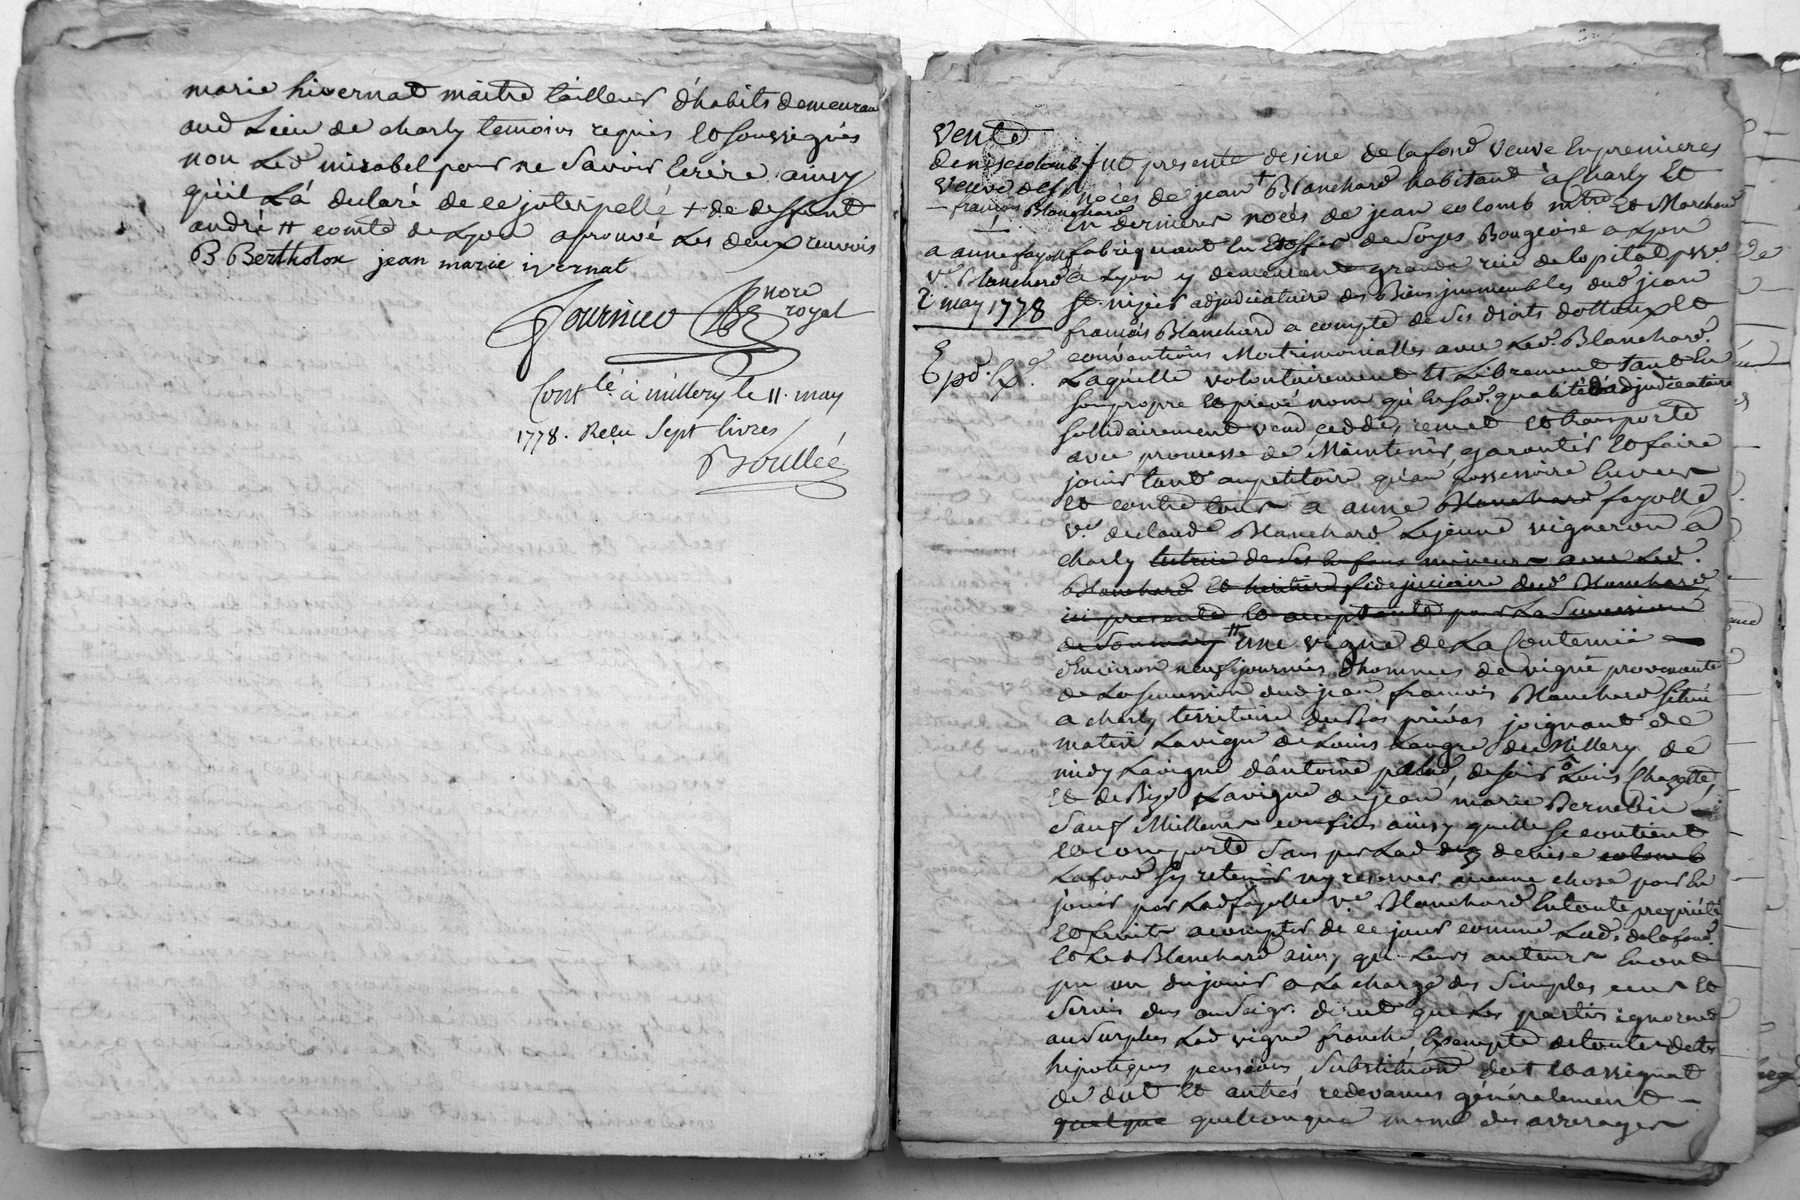 marie hivernat maitre tailleur d'habits demeurant
aud Lieu de charly temoins requis et soussignés
non Led mirabel pour ne savoir Ecrire ainsy
qu'il La declaré de ce interpellé + de deffunt
andré # comte de Lyon aprouvé Les deux renvois
B Bertholon jean marie ivernat
fournieo nore
royal
Contlé à millery le 11. may
1778. Reçu Sept livres
Boullée
Vente
denise colomb
veuve de
françois Blanchard
a anne fayolle
Ve. Blanchard
2 may 1778
Epd.
fut presente denise de lafond veuve En premieres
noces de jean + Blanchard habitant à Charly Et
En dernieres noces de jean colomb mtre Et Marchand
fabriquant En Etoffes de Soyes Bourgeoise a Lyon
à Lyon y demeurante grande rue de lopital psse
St. nizier adjudicataire des Biens immeubles dud jean
françois Blanchard a compte de Ses droits dottaux et
conventions Matrimonialles avec Led. Blanchard.
Laquelle volontairement Et Librement tant En
son propre et privé nom qu'En sad. qualité d'adjudicataire
sollidairement vend cedde, remet et transporte
avec promesse de Maintenir, garentir et faire
jouir tant au petitoire qu'au possessoire Envers
et contre tous a anne Blanchard fayolle
ve. de claude Blanchard Lejeune vigneron à
charly tutrice de ses Enfans mineurs avec Led.
Blanchard et heritiere fidejuciaire dud Blanchard
ici presente et acceptante pour La Succession
de Son mary # une vigne de La Contenüe
d'Environ neuf journées d'hommes de vigne provenante
de La Succession dud jean françois Blanchard Située
a charly territoire du Bas privas joignant de
matin La vigne de Louis Laugre de Millery, de
midy La vigne d'antoine, de soir à Louis Chazotte,
et de Bize La vigne de jean marie Bernedin
Sauf Meilleurs confins ainsy quelle Se contient
et comporte Sans par Lad denise colomb
Lafond Sy retenir ny reserver aucune chose pour En
jouir par Lad fayolle ve. Blanchard En toute propriété
et fruits acompter de ce jour comme Lad. de lafond.
et Led Blanchard ainsy que Leurs auteurs En ont
pu ou du jouir a La charge des Simples cens et
Servis dus au Seigr. direct que Les parties ignorent
au Surplus Lad vigne franche Exempte de toutes dettes
hipoteques pensions Substitution dot et assignat
de dot et autres redevances généralement
quelque quelconque meme des arrerages